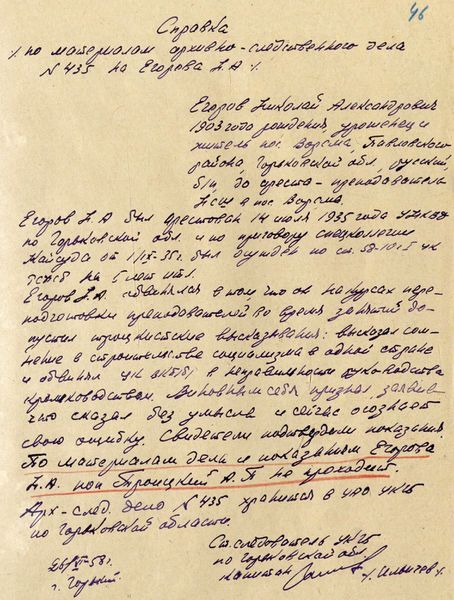 46
Справка
./. по материалам архивно-следственного дела
N 435 на Егорова Н.А ./.
Егоров Николай Александрович
1903 года рождения, уроженец и
житель пос. Ворсма, Павловского
района, Горьковской обл, русский,
б/п, до ареста - преподаватель
в пос Ворсма.
Егоров Н.А был арестован 14 июля 1935 года УНКВД
по Горьковской обл. и по приговору спецколлегии
Крайсуда от 1/IX-35г. был осужден по ст. 58-10 ч I УК
РСФСР на 5 лет итл.
Егоров Н.А. обвинялся в том, что он на курсах пере-
подготовки преподавателей во время занятий до-
пустил троцкистские высказывания: высказал сом-
нение в строительстве социализма в одной стране
и обвинял ЦК ВКП/б/ в неправильности руководства
. Виновным себя признал, заявив
что сказал без умысла и сейчас осознает
свою ошибку. Свидетели подтвердили показания.
По материалам дела и показаниям Егорова
Н.А. поп Троицкий А.П не проходит.
Арх-след. дело N 435 хранится в УАО УКГБ
по Горьковской области.
Ст. следователь УКГБ
по Горьковской обл.
капитан ./. Ильичев ./.
26/VI-58г.
г. Горький.